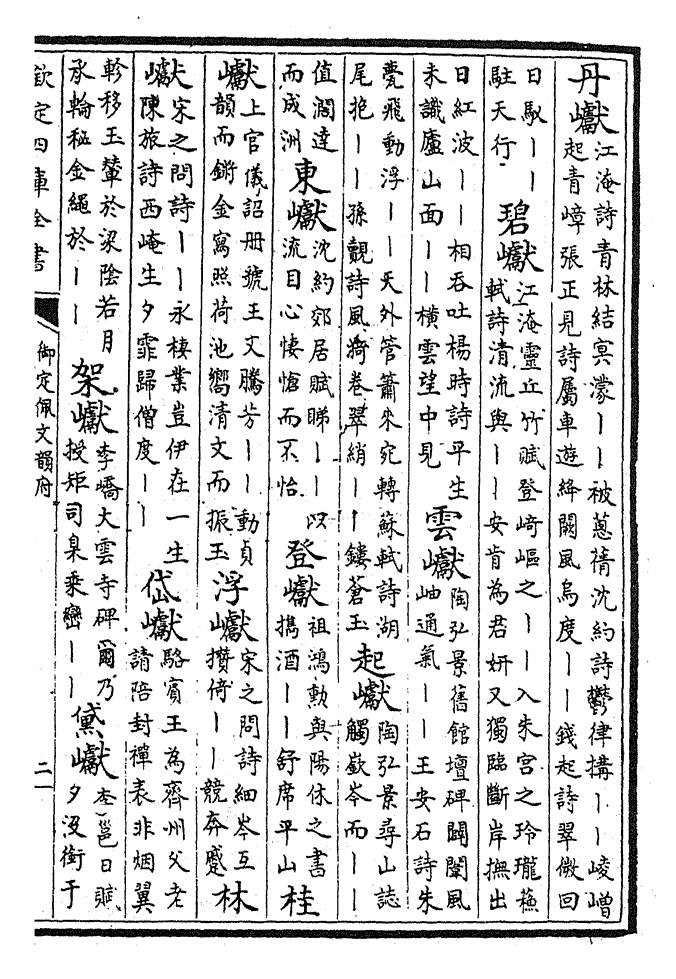 丹巘
江淹詩青林結冥濛丨丨被蔥蒨沈約詩鬱律搆丨丨崚嶒
起青嶂張正見詩屬車遊絳闕風烏度丨丨錢起詩翠微回
日馭丨丨
駐天行
碧巘
江淹靈丘竹賦登崎嶇之丨丨入朱宮之玲瓏蘇
軾詩清流與丨丨安肯為君妍又獨臨斷岸撫出
日紅波丨丨相吞吐楊時詩平生
未識廬山面丨丨橫雲望中見
雲巘
陶弘景舊館壇碑闢閫風
岫通氣丨丨王安石詩朱
甍飛動浮丨丨天外管簫來宛轉蘇軾詩湖
尾抱丨丨孫覿詩風漪卷翠綃丨丨鏤蒼玉
起巘
陶弘景尋山誌
觸嶔岑而丨丨
值濶達
而成洲
東巘
沈約郊居賦睇丨丨以
流目心悽愴而不怡
登巘
祖鴻勳與陽休之書
擕酒丨丨舒席平山
桂
巘
上官儀詔册號王文騰芳丨丨動貞
韻而鏘金寫照荷池嚮清文而振玉
浮巘
宋之問詩細岑互
攢倚丨丨競奔蹙
林
巘
宋之問詩丨丨永棲業豈伊在一生
陳旅詩西崦生夕霏歸僧度丨丨
岱巘
駱賓王為齊州父老
請陪封禪表非烟翼
軫移玉輦於梁陰若月
承輪秘金繩於丨丨
架巘
李嶠大雲寺碑爾乃
授矩司臬乘巒丨丨
黛巘
李邕日賦
夕沒銜于
欽定四庫全書
御定佩文韻府
二